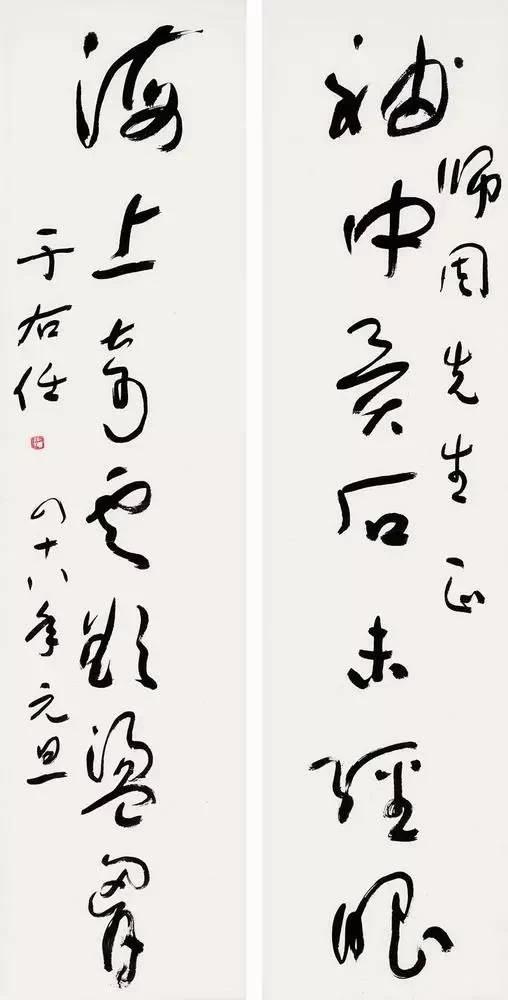 師周先生正
袖中異石未經眼
海上奇雲欲盪胷
于右任 四十八年元旦